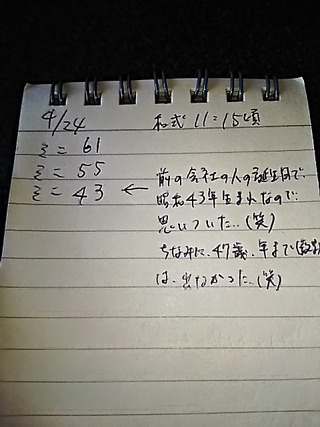 4/24 私式 11=15頃
ミニ 61
ミニ 55
ミニ 43 ←
前の会社の人の誕生日で、
昭和43年生まれなので
思いついた…(笑)
ちなみに、47歳、年まで(数字
は、出なかった…(笑)